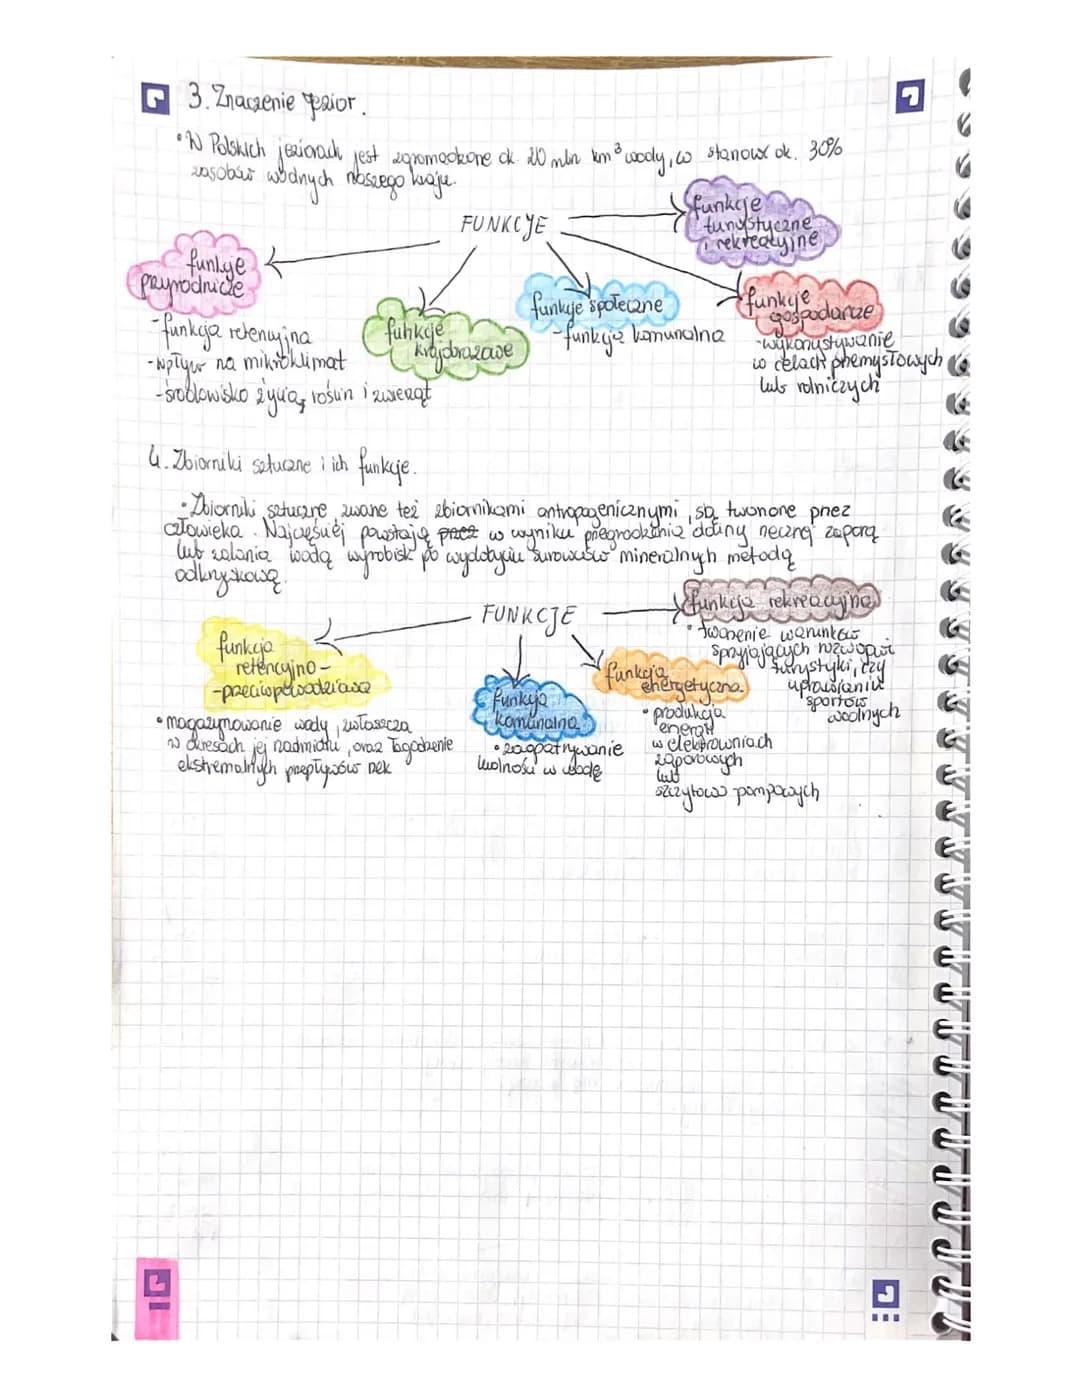 3. Znaczenie jezior.
• W Polskich jeziorach jest zgromadzone ok. 20 mln km³ wody, co stanowi ok. 30%
zasobów wodnych naszego kraju.
FUNKCJE
funkcje
turystyczne
i rekreacyjne
funkcje
przyrodnicze
- funkcja retencyjna
- wpływ na mikroklimat
- środowisko życia roślin i zwierząt
funkcje
krajobrazowe
funkcje społeczne
- funkcja komunalna
funkcje
gospodarcze
- wykorzystywanie
w celach przemysłowych
lub rolniczych
4. Zbiorniki sztuczne i ich funkcje.
• Zbiorniki sztuczne, zwane też zbiornikami antropogenicznymi, są tworzone przez
człowieka. Najczęściej powstają przez w wyniku przegrodzenia doliny rzecznej zaporą
lub zalania wodą wyrobisk po wydobyciu surowców mineralnych metodą
odkrywkową.
FUNKCJE
funkcja rekreacyjna
• tworzenie warunków
sprzyjających rozwojowi
turystyki, czy
uprawianiu
sportów
wodnych
funkcja
retencyjno -
- przeciwpowodziowa
• magazynowanie wody, zwłaszcza
w okresach jej nadmiaru, oraz łagodzenie
ekstremalnych przepływów rzek
funkcja
komunalna
• zaopatrywanie
ludności w wodę
funkcja
energetyczna
• produkcja
energii
w elektrowniach
zaporowych
lub
szczytowo pompowych